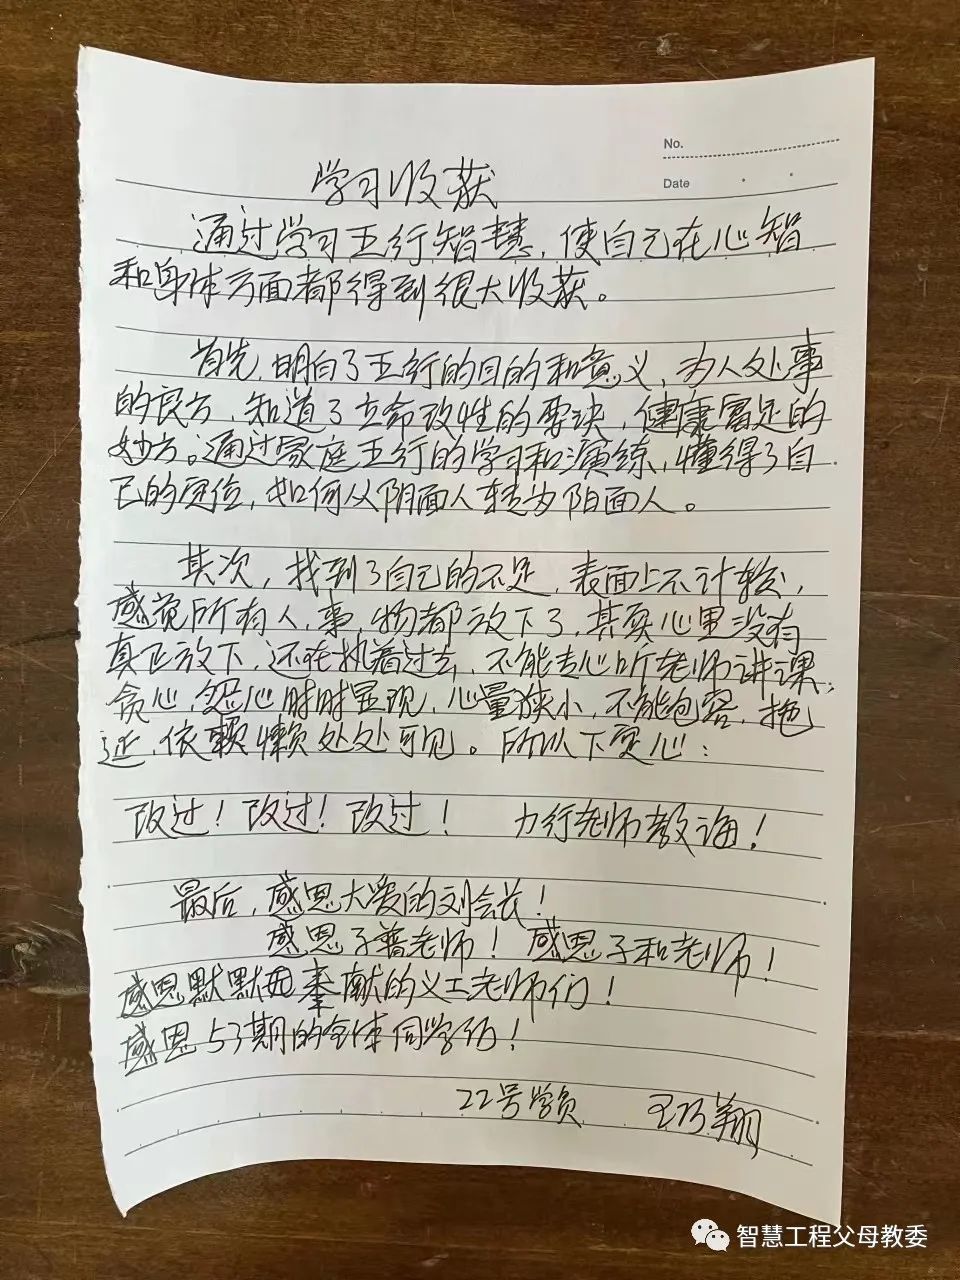 No.
Date
学习收获
通过学习五行智慧，使自己在心智
和身体方面都得到很大收获。
首先，明白了五行的目的和意义，为人处事
的良方，知道了立命改性的要诀，健康富足的
妙方。通过家庭五行的学习和演练，懂得了自
己的定位，如何从阴面人转为阳面人。
其次，找到了自己的不足，表面上不计较，
感觉所有人，事，物都放下了，其实心里没有
真正放下，还在执着过去，不能专心听老师讲课，
贪心，怨心时时显现，心量狭小，不能包容，拖
延，依赖懒处处可见。所以下定心：
改过！改过！改过！ 力行老师教诲！
最后，感恩大爱的刘会长！
感恩子蓉老师！感恩子和老师！
感恩默默无奉献的义工老师们！
感恩53期的全体同学们！
22号学员 王巧翔
智慧工程父母教委